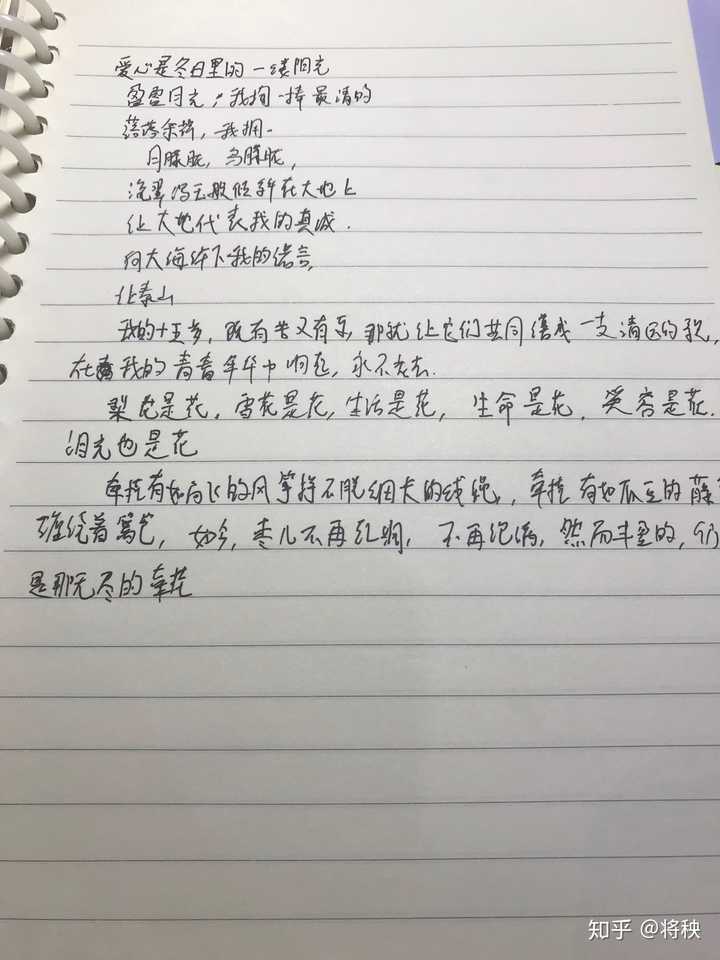 爱心是冬日里的一缕阳光
盈盈月光，我掬一捧最清的
落落余辉，我拥一
月朦胧，鸟朦胧，
般倾斜在大地上
让大地代表我的真诚.
何大海许下我的诺言,
让泰山
我的十五岁，既有苦又有乐 那就让它们共同谱成一支清远的歌,
在我的青青年华中响起，永不失去.
梨花是花，雪花是花,生活是花， 生命是花，笑容是花.
泪光也是花
牵挂有如高飞的风筝挣不脱细长的线绳，牵挂有如瓜豆的藤
缠绕着篱笆, 如今, 枣儿不再红润， 不再饱满, 然而丰盈的,仍
是那无尽的牵挂
知乎 @将秧